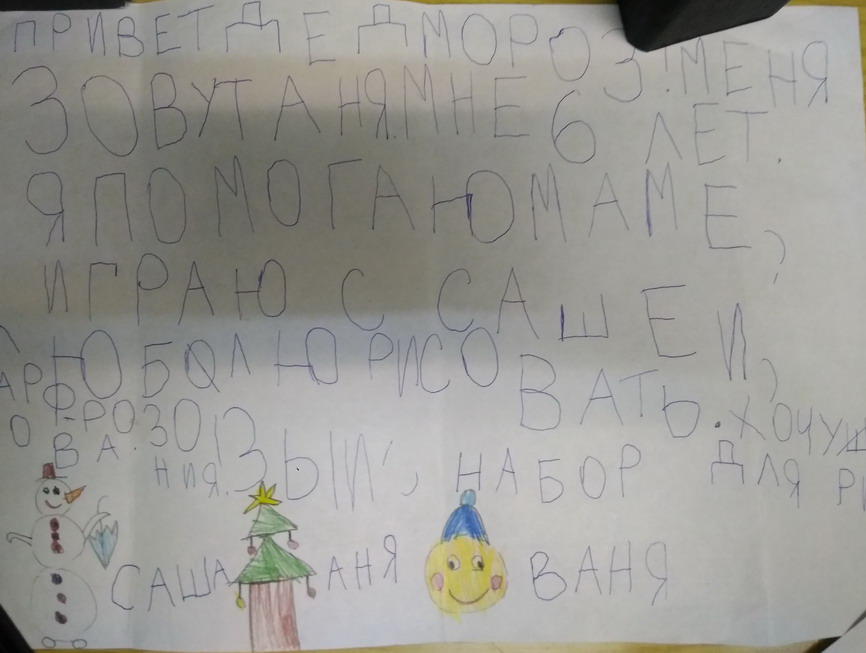 ПРИВЕТ ДЕД МОРОЗ! МЕНЯ
ЗОВУТ АНЯ. МНЕ 6 ЛЕТ.
Я ПОМОГАЮ МАМЕ,
ИГРАЮ С САШЕЙ,
ЛЮБОЛЮ РИСОВАТЬ. ХОЧУ
РОЗОЗЫЙ, НАБОР ДЛЯ РИ
ОВАНИЯ.
САША АНЯ ВАНЯ